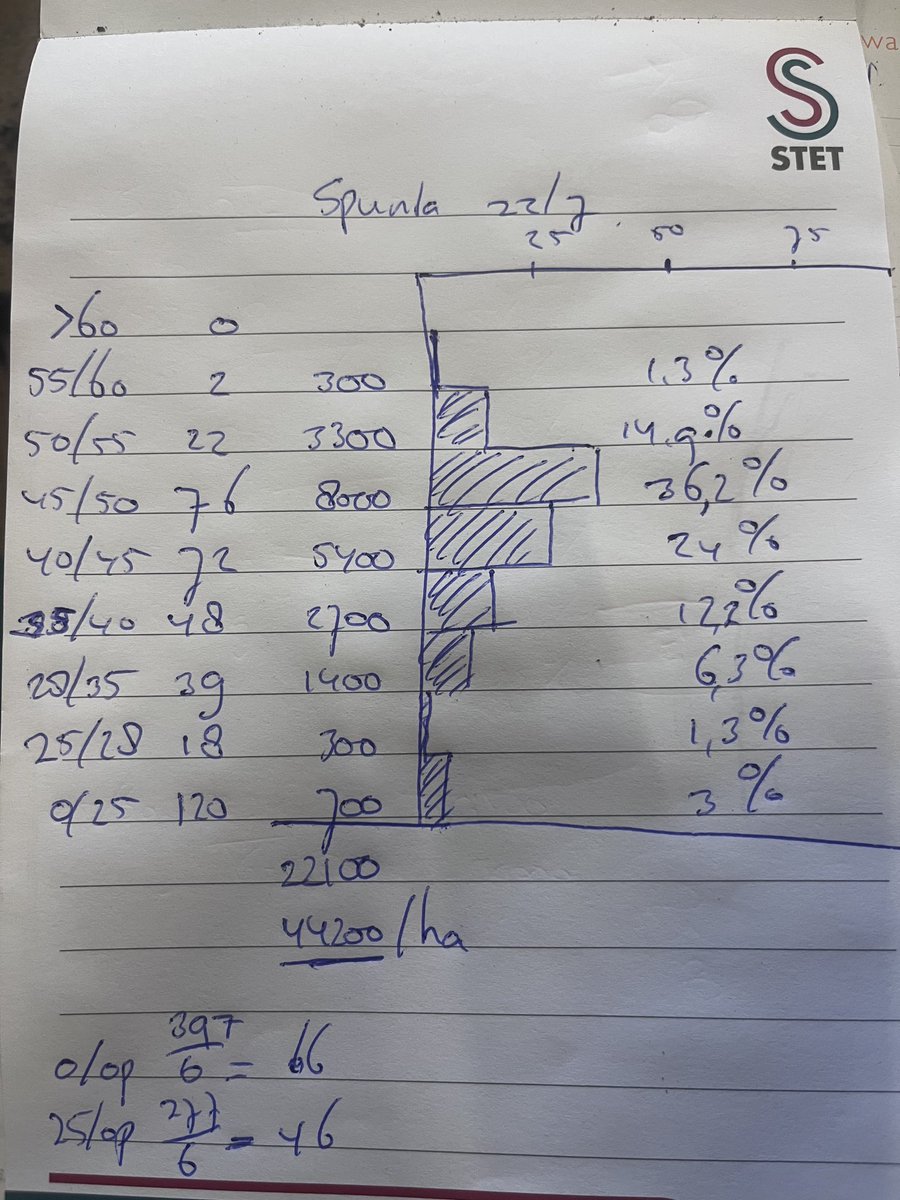 STET
Spunta 22/7
25 50 75
>60 0
55/60 2 300 1,3%
50/55 22 3300 14,9%
45/50 76 8000 36,2%
40/45 72 5400 24%
35/40 48 2700 12,2%
28/35 39 1400 6,3%
25/28 18 300 1,3%
0/25 120 700 3%
22100
44200/ha
0/op 397/6 = 66
25/op 277/6 = 46